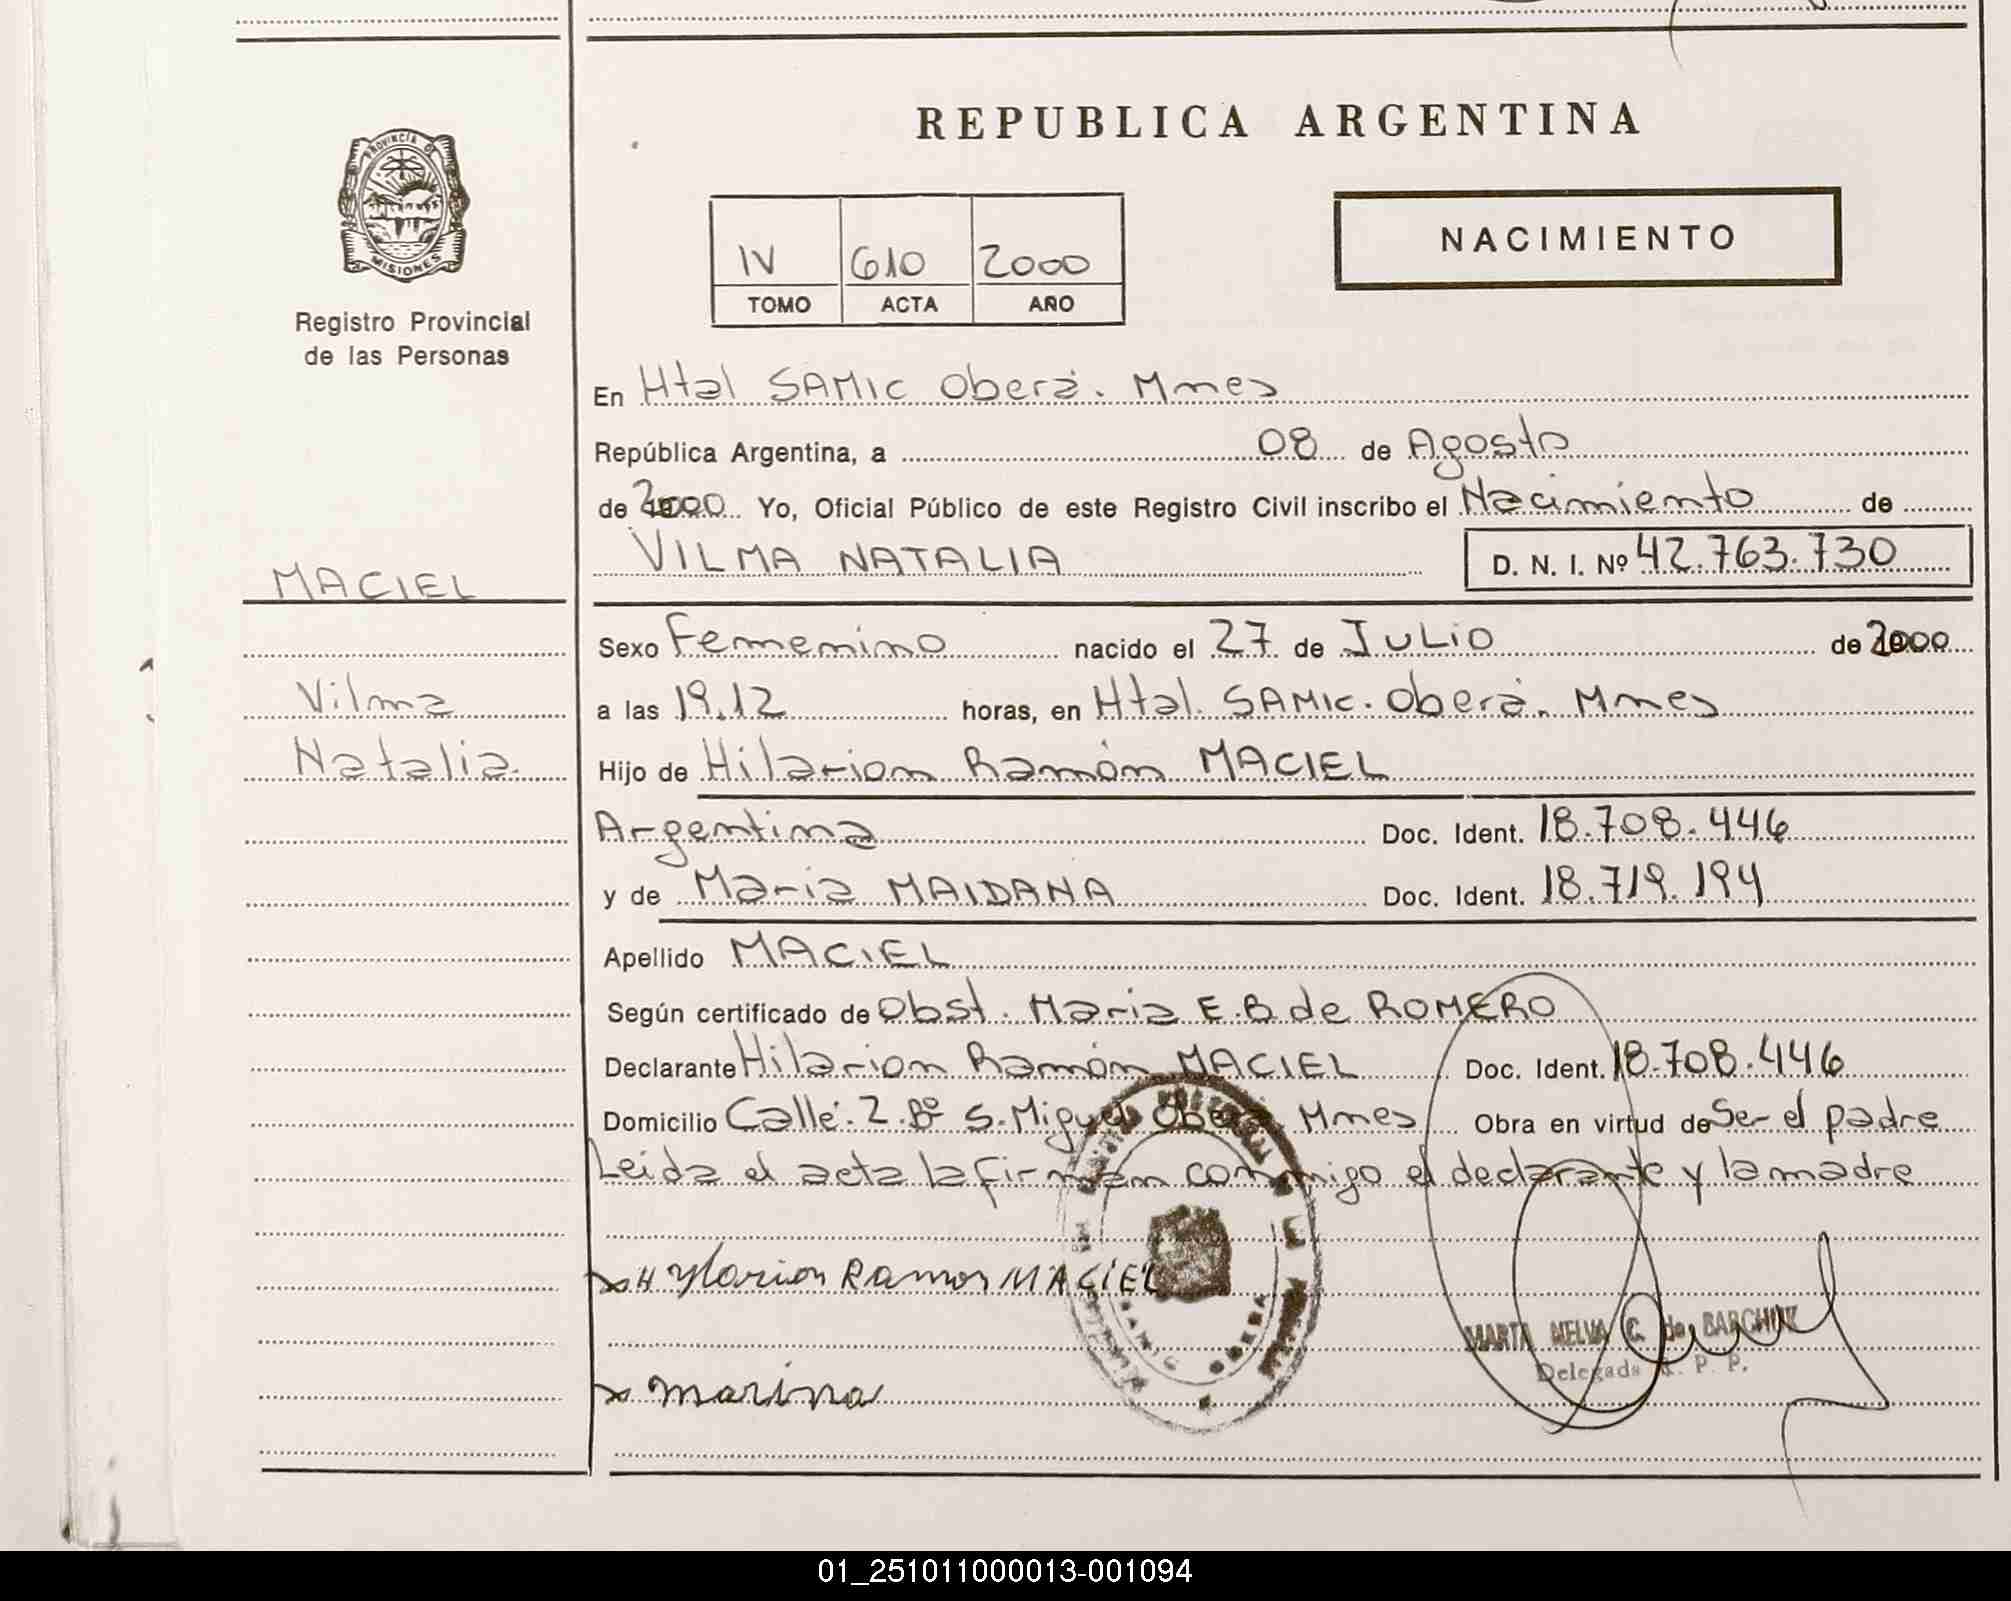 REPUBLICA ARGENTINA
PROVINCIA DE
MISIONES
Registro Provincial
de las Personas
IV 610 2000
TOMO ACTA AÑO
NACIMIENTO
En Htal SAMIC Oberá. Mnes
República Argentina, a 08 de Agosto
de 2000 Yo, Oficial Público de este Registro Civil inscribo el Nacimiento de
VILMA NATALIA D. N. I. Nº 42.763.730
MACIEL
Vilma
Natalia.
Sexo Femenino nacido el 27 de JULIO de 2000
a las 19.12 horas, en Htal. SAMIC. Oberá. Mnes
Hijo de Hilarion Ramón MACIEL
Argentina Doc. Ident. 18.708.446
y de Maria MAIDANA Doc. Ident. 18.719.194
Apellido MACIEL
Según certificado de Obst. Maria E.B de ROMERO
Declarante Hilarion Ramón MACIEL Doc. Ident. 18.708.446
Domicilio Calle: 2. Bº S. Miguel Oberá Mnes Obra en virtud de Ser el padre
Leida el acta la firman conmigo el declarante y la madre
x H Ylarion Ramon MACIEL
MARTA MELVA C. de
Delegada R. P. P.
x marina
SAMIC OBERA
01_251011000013-001094